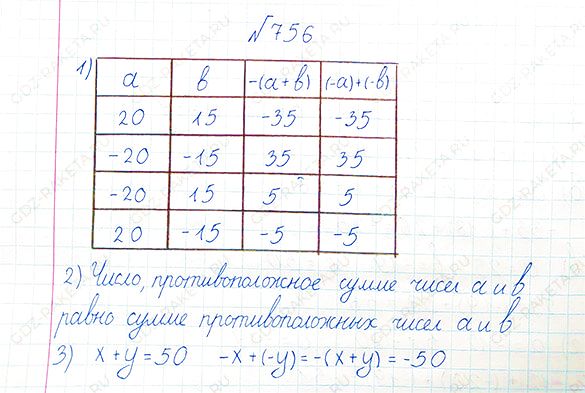 №756
1)
a в -(a+в) (-a)+(-в)
20 15 -35 -35
-20 -15 35 35
-20 15 5 5
20 -15 -5 -5
2) Число, противоположное сумме чисел a и в
равно сумме противоположных чисел a и в
3) x+y=50 -x+(-y)=-(x+y)=-50
GDZ-RAKETA.RU